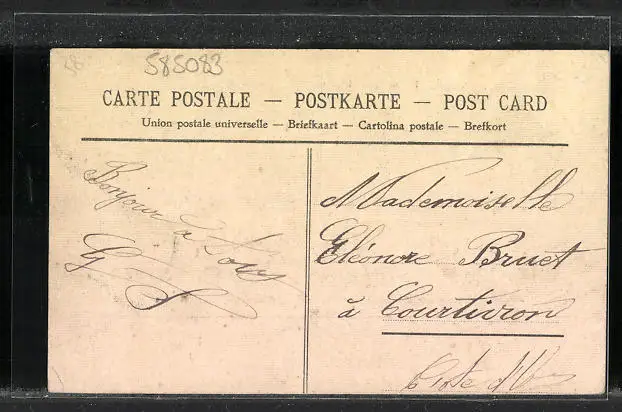 585083
CARTE POSTALE — POSTKARTE — POST CARD
Union postale universelle — Briefkaart — Cartolina postale — Brefkort
Bonjour à Tous
G S
Mademoiselle
Eléonore Bruet
à Courtivron
Côte d'Or